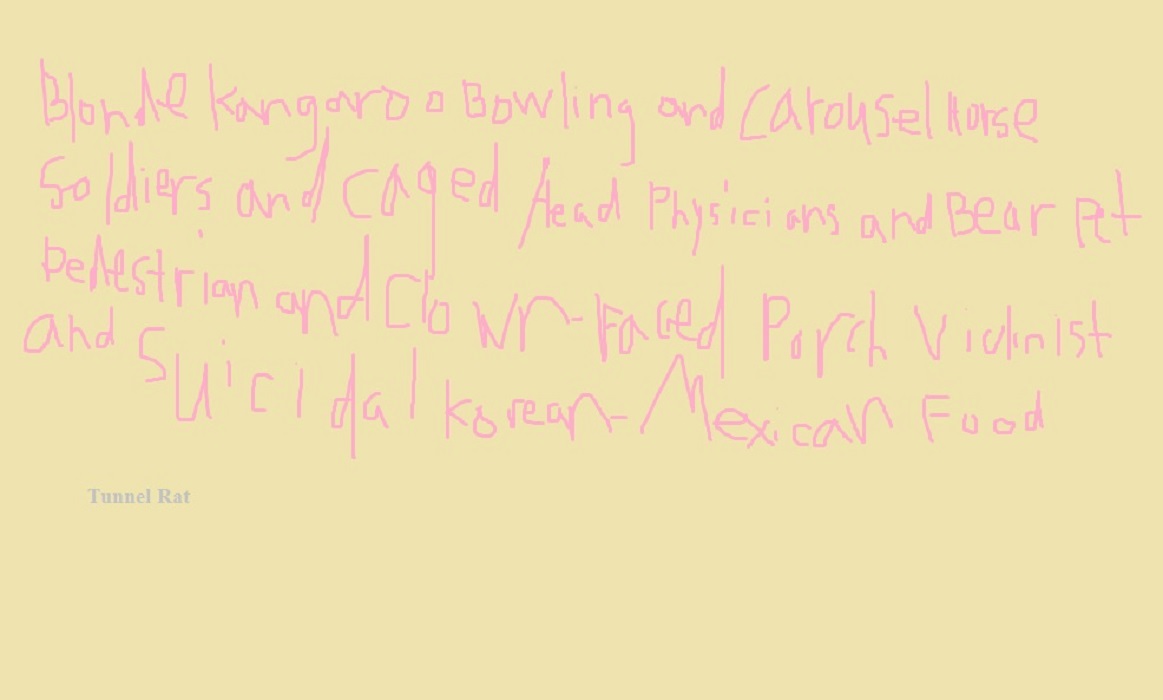 Blonde Kangaroo Bowling and Carousel Horse
Soldiers and Caged Head Physicians and Bear Pet
Pedestrian and Clown-Faced Porch Violinist
and Suicidal Korean-Mexican Food
Tunnel Rat